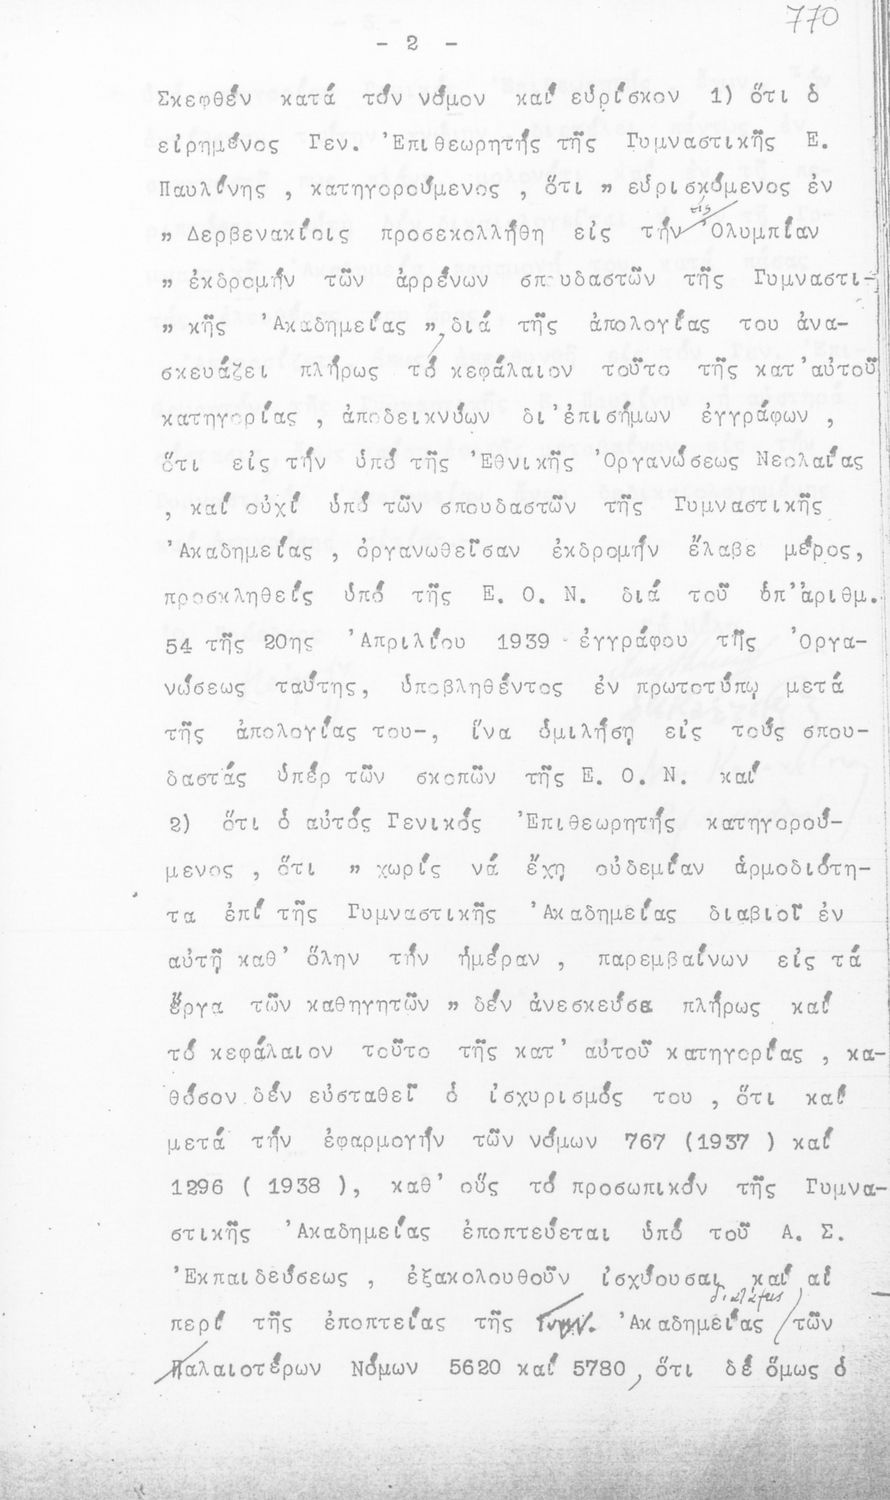 770
- 2 -
Σκεφθέν κατά τόν νόμον καί εὑρίσκον 1) ὅτι ὁ
εἰρημένος Γεν. Ἐπιθεωρητής τῆς Γυμναστικῆς Ε.
Παυλίνης , κατηγορούμενος , ὅτι " εὑρισκόμενος ἐν
εἰς
" Δερβενακίοις προσεκολλήθη εἰς τήν Ὀλυμπίαν
" ἐκδρομήν τῶν ἀρρένων σπουδαστῶν τῆς Γυμναστι-
" κῆς Ἀκαδημείας ", διά τῆς ἀπολογίας του ἀνα-
σκευάζει πλήρως τό κεφάλαιον τοῦτο τῆς κατ' αὐτοῦ
κατηγορίας , ἀποδεικνύων δι' ἐπισήμων ἐγγράφων ,
ὅτι εἰς τήν ὑπό τῆς Ἐθνικῆς Ὀργανώσεως Νεολαίας
, καί οὐχί ὑπό τῶν σπουδαστῶν τῆς Γυμναστικῆς
Ἀκαδημείας , ὀργανωθεῖσαν ἐκδρομήν ἔλαβε μέρος,
προσκληθείς ὑπό τῆς Ε. Ο. Ν. διά τοῦ ὑπ' ἀριθμ.
54 τῆς 20ης Ἀπριλίου 1939 - ἐγγράφου τῆς Ὀργα-
νώσεως ταύτης, ὑποβληθέντος ἐν πρωτοτύπῳ μετά
τῆς ἀπολογίας του-, ἵνα ὁμιλήσῃ εἰς τούς σπου-
δαστάς ὑπέρ τῶν σκοπῶν τῆς Ε. Ο. Ν. καί
2) ὅτι ὁ αὐτός Γενικός Ἐπιθεωρητής κατηγορού-
μενος , ὅτι " χωρίς νά ἔχῃ οὐδεμίαν ἁρμοδιότη-
τα ἐπί τῆς Γυμναστικῆς Ἀκαδημείας διαβιοῖ ἐν
αὐτῇ καθ' ὅλην τήν ἡμέραν , παρεμβαίνων εἰς τά
ἔργα τῶν καθηγητῶν " δέν ἀνεσκεύσε πλήρως καί
τό κεφάλαιον τοῦτο τῆς κατ' αὐτοῦ κατηγορίας , κα-
θόσον δέν εὐσταθεῖ ὁ ἰσχυρισμός του , ὅτι καί
μετά τήν ἐφαρμογήν τῶν νόμων 767 (1937 ) καί
1296 ( 1938 ), καθ' οὕς τό προσωπικόν τῆς Γυμνα-
στικῆς Ἀκαδημείας ἐποπτεύεται ὑπό τοῦ Α. Σ.
Ἐκπαιδεύσεως , ἐξακολουθοῦν ἰσχύουσαι καί αἱ
διατάξεις
περί τῆς ἐποπτείας τῆς Γυμν. Ἀκαδημείας τῶν
Παλαιοτέρων Νόμων 5620 καί 5780, ὅτι δέ ὅμως ὁ